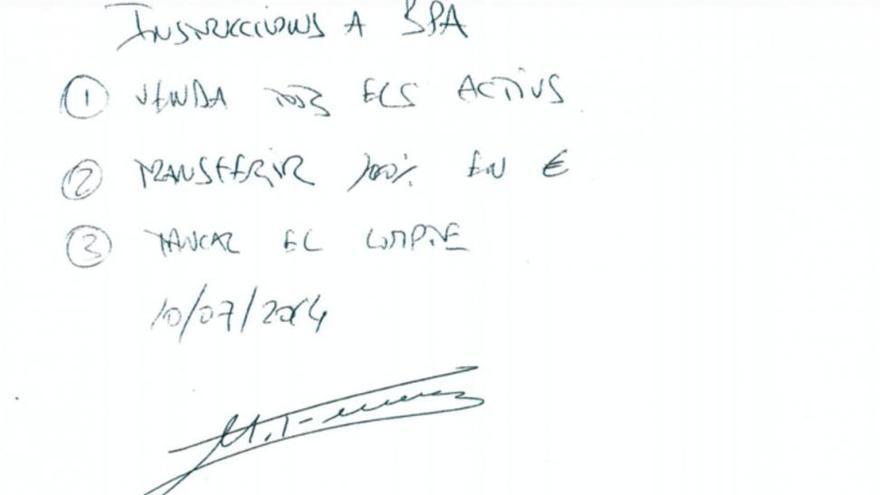 INSTRUCCIONS A BPA
① VENDA TOTS ELS ACTIUS
② TRANSFERIR 100% EN €
③ TANCAR EL COMPTE
10/07/2014